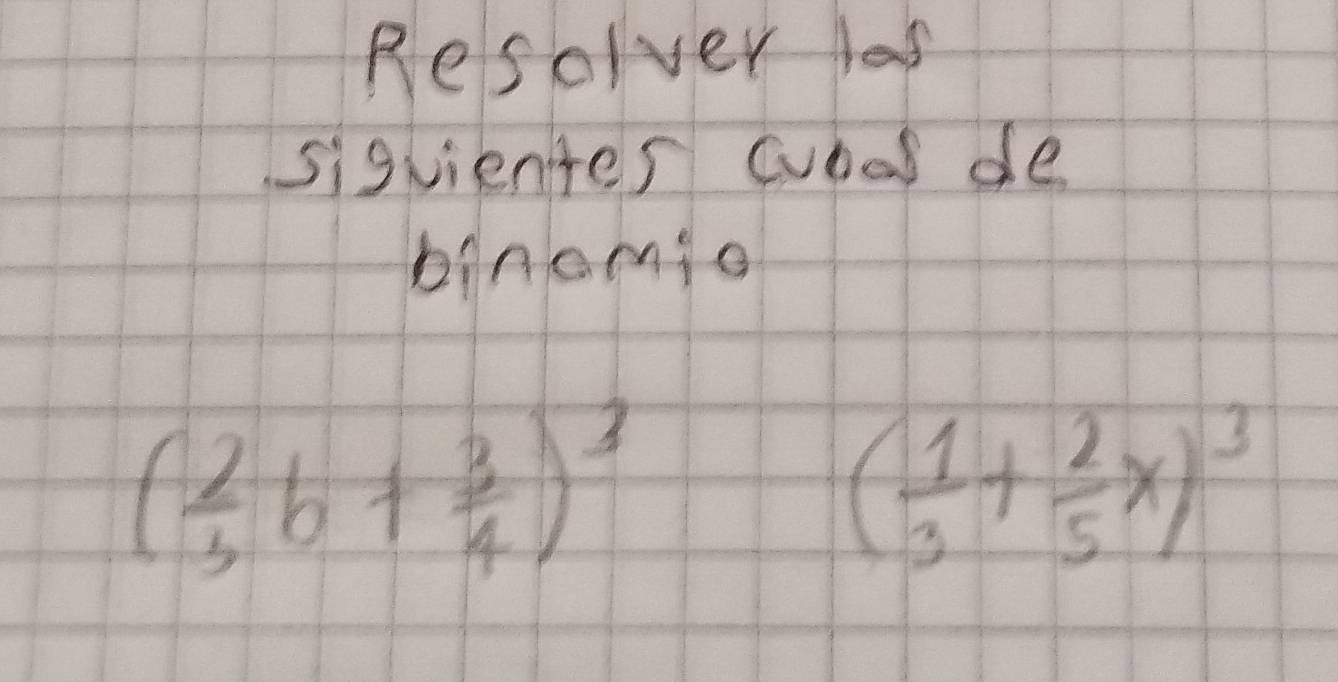 Resolver los
siguientes cubos de
binomio
(2/3 b + 3/4)³ (1/3 + 2/5 x)³